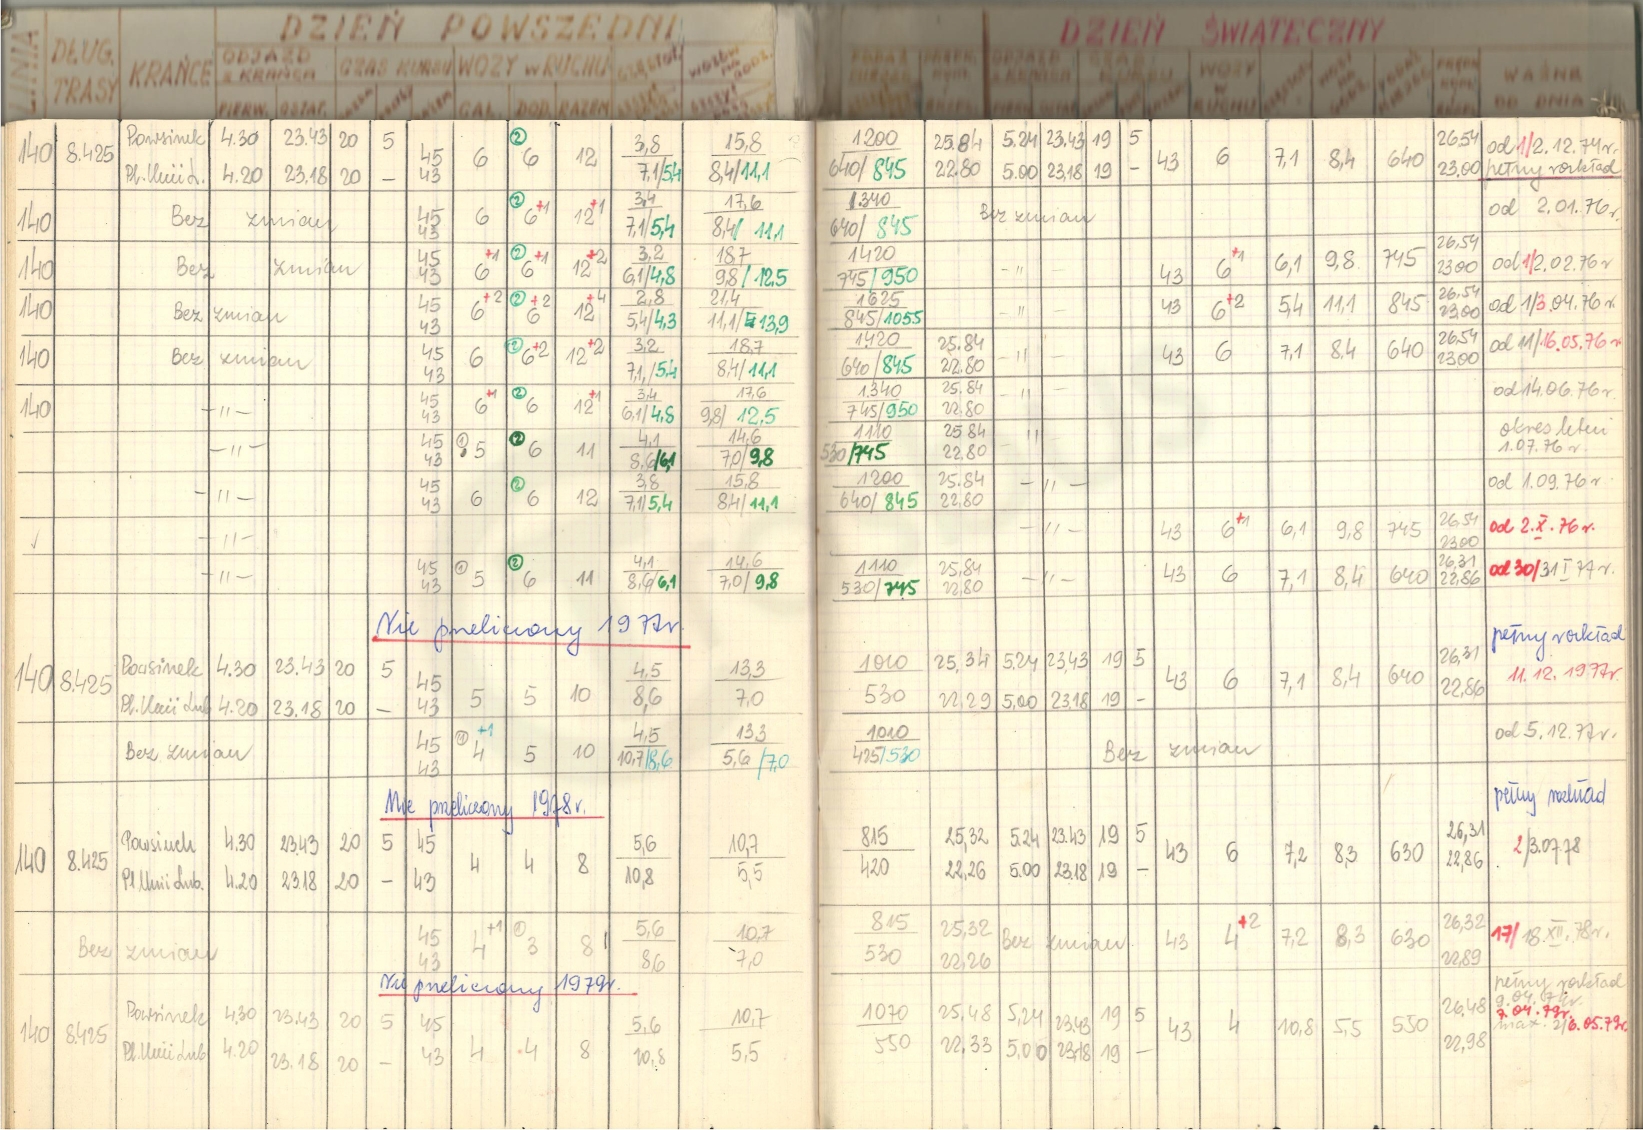 DZIEŃ POWSZEDNI DZIEŃ ŚWIĄTECZNY
LINIA DŁUG. TRASY KRAŃCE ODJAZD z KRAŃCA CZAS KURSU WOZY w RUCHU ODJAZD WOZY w RUCHU WAŻNE OD DNIA
PIERW. OSTAT. GAL. DOD. RAZEM
140 8.425 Powsinek 4.30 23.43 20 5 45 6 ② 6 12 3,8 15,8 1200 25.84 5.24 23.43 19 5 43 6 7,1 8,4 640 26,54 od 1/2.12.74r.
Pl. Unii L. 4.20 23.18 20 – 43 7,1/5,4 8,4/11,1 640/845 22.80 5.00 23.18 19 – 23,00 pełny rozkład
140 Bez zmian 45 6 ② 6+1 12+1 3,4 17,6 1340 Bez zmian od 2.01.76r.
43 7,1/5,4 8,4/11,1 640/845
140 Bez zmian 45 6+1 ② 6+1 12+2 3,2 18,7 1420 –"– 43 6+1 6,1 9,8 745 26,54 od 1/2.02.76r
43 6,1/4,8 9,8/12,5 745/950 23,00
140 Bez zmian 45 6+2 ② 6+2 12+4 2,8 21,4 1625 –"– 43 6+2 5,4 11,1 845 26,54 od 1/3.04.76r
43 5,4/4,3 11,1/13,9 845/1055 23,00
140 Bez zmian 45 6 ② 6+2 12+2 3,2 18,7 1420 25.84 –"– 43 6 7,1 8,4 640 26,54 od 11/16.05.76r
43 7,1/5,4 8,4/11,1 640/845 22.80 23,00
140 –"– 45 6+1 ② 6 12+1 3,4 17,6 1340 25,84 –"– od 14.06.76r.
43 6,1/4,8 9,8/12,5 745/950 22.80
–"– 45 ① 5 ② 6 11 4,1 14,6 1110 25 84 " okres letni
43 8,6/6,1 7,0/9,8 530/745 22,80 1.07.76r.
–"– 45 6 ② 6 12 3,8 15,8 1200 25.84 –"– od 1.09.76r.
43 7,1/5,4 8,4/11,1 640/845 22,80
√ –"– –"– 43 6+1 6,1 9,8 745 26,54 od 2.X.76r.
23,00
–"– 45 ① 5 ② 6 11 4,1 14,6 1110 25,84 –"– 43 6 7,1 8,4 640 26,31 od 30/31 I 77r.
43 8,6/6,1 7,0/9,8 530/745 22,80 22,86
Nie przeliczony 1977r. pełny rozkład
140 8.425 Powsinek 4.30 23.43 20 5 45 5 5 10 4,5 13,3 1010 25,34 5.24 23,43 19 5 43 6 7,1 8,4 640 26,31 11.12.1977r.
Pl. Unii Lub 4.20 23.18 20 – 43 8,6 7,0 530 22,29 5,00 23.18 19 – 22,86
Bez zmian 45 4+1 5 10 4,5 13,3 1010 Bez zmian od 5.12.77r.
43 10,7/8,6 5,6/7,0 425/530
Nie przeliczony 1978r. pełny rozkład
140 8.425 Powsinek 4.30 23.43 20 5 45 4 4 8 5,6 10,7 815 25,32 5.24 23.43 19 5 43 6 7,2 8,3 630 26,31 2/3.07.78
Pl. Unii Lub. 4.20 23.18 20 – 43 10,8 5,5 420 22,26 5.00 23.18 19 – 22,86
Bez zmian 45 4+1 ① 3 8 5,6 10,7 815 25,32 Bez zmian 43 4+2 7,2 8,3 630 26,32 17/18.XII.78r.
43 8,6 7,0 530 22,26 22,89
Nie przeliczony 1979r. pełny rozkład
140 8.425 Powsinek 4.30 23.43 20 5 45 4 4 8 5,6 10,7 1070 25,48 5,24 23,43 19 5 43 4 10,8 5,5 550 26,48 7.04.79r.
Pl. Unii Lub 4.20 23.18 20 – 43 10,8 5,5 550 22,33 5,00 23,18 19 – 22,98 max. 2/6.05.79r